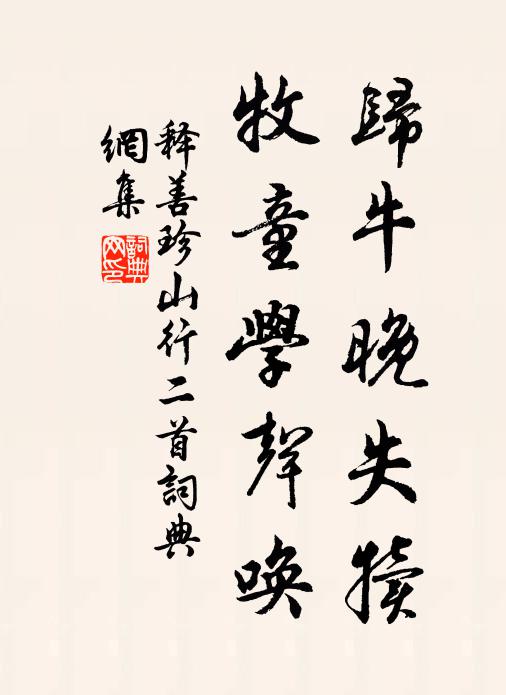 歸牛晚失犢
牧童學聲喚
释善珍山行二首詞典
網集
詞典
网印